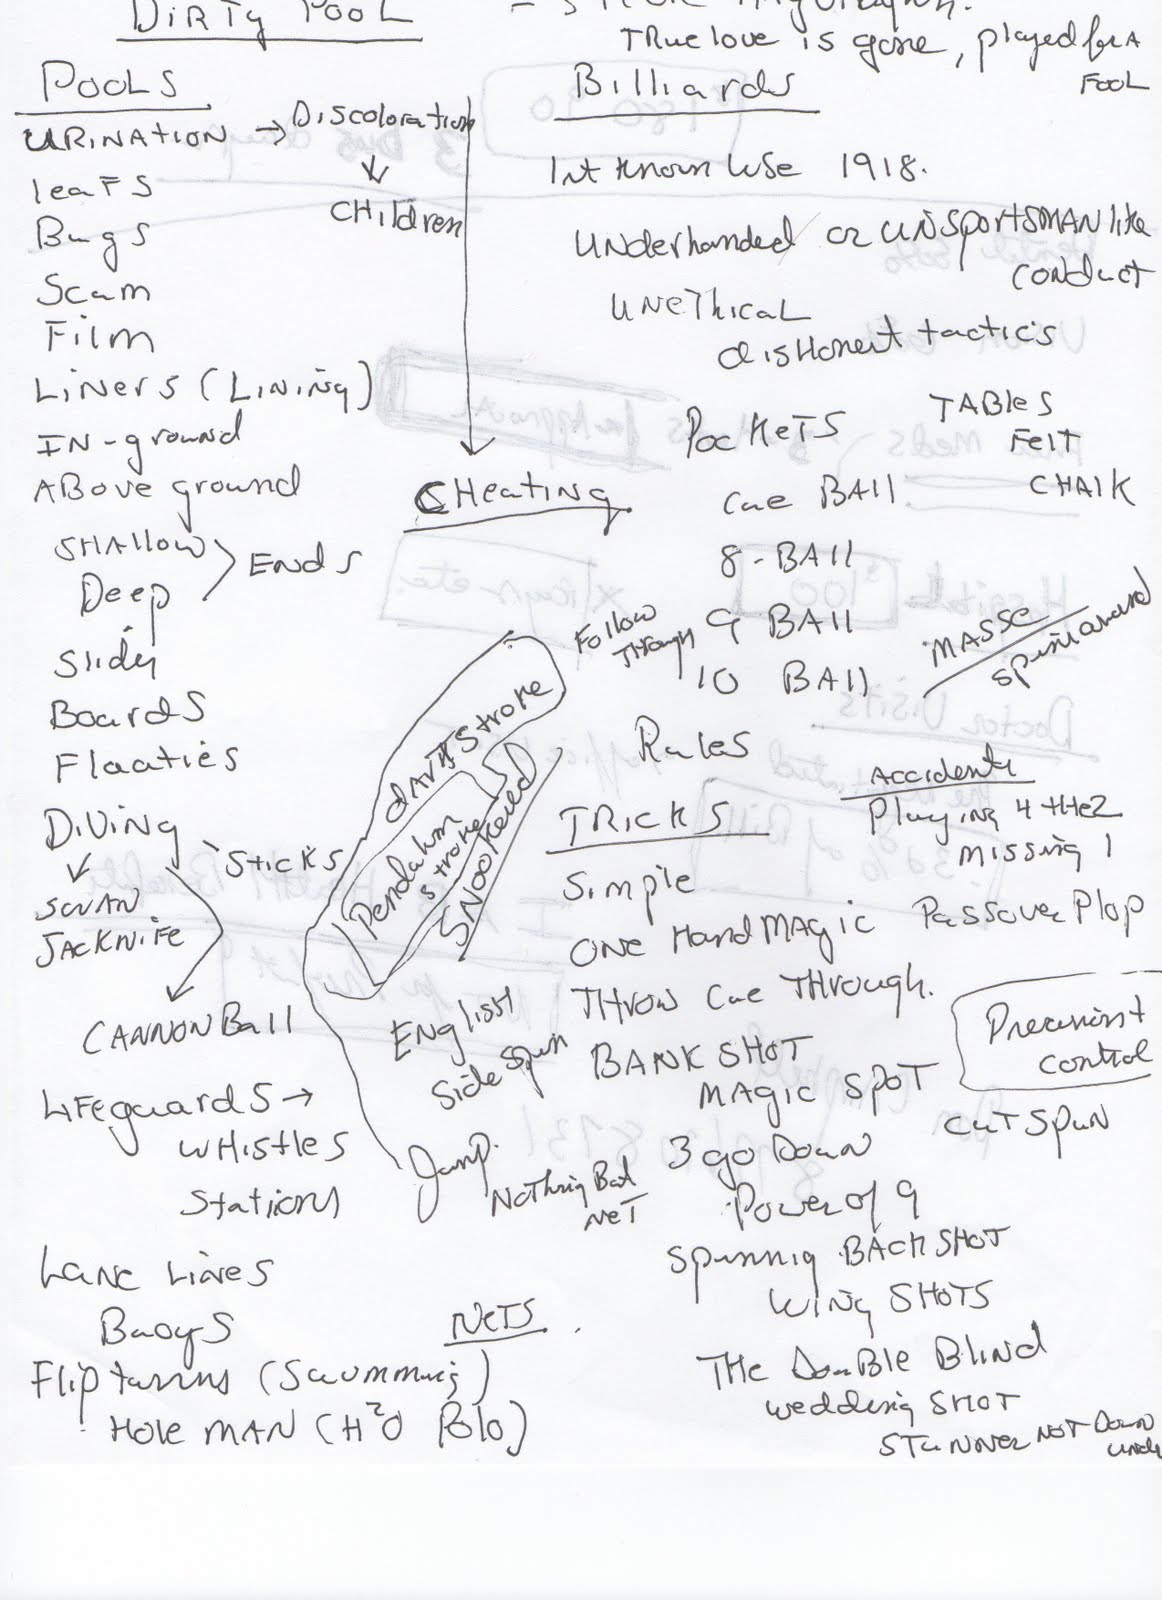 DIRTY POOL
TRue love is gone, played for A
FOOL
POOLS
URINATION → Discoloration
CHildren
leaFS
Bugs
Scum
Film
LINERS (LINING)
IN-ground
ABove ground
SHAllow
Deep
ENDS
Slidy
Boards
Floaties
DIVING
Sticks
SWAN
JACKNIFE
CANNONBall
LiFeguardS →
WHistles
Stations
Lane Lines
Buoys
Flip turns (Swimming)
HOle MAN (H2O Polo)
NeTS
CHeating
Billiards
1st Known Use 1918.
UNderhanded or UNSportSMANlike
CONDUCT
UNeTHical
disHonest tactics
PockeTS
TABles
Felt
CHAlK
Cue BAll
8-BAll
Follow
THrough
9 BAll
10 BAll
MASSE
Rules
Accidents
Playing 4 tHe 2
Missing 1
dArtStroke
Pendulum
Stroke
SNOOKered
TRICKS
Simple
ONe HandMAgic
PassoverPlop
THrow Cue THrough.
ENglisH
Side Spin
BANK SHOT
MAgic SpoT
control
cuT SpiN
Jump.
NoTHing But
NeT
3 go Down
Power of 9
Spinnig BACK SHOT
WiNg SHOTS
THe DouBle BliNd
Wedding SHOT
NOT DowN